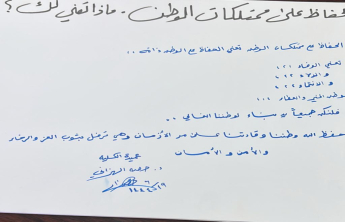 الحفاظ على ممتلكات الوطن. ماذا تعني لك؟
الحفاظ على ممتلكات الوطن تعني الحفاظ على الوطن ذاته..
تعني الوفاء !!!
والولاء !!!
والانتماء !!!
لوطن الخير والعطاء !!!
فلنكن جميعاً بناء لوطننا الغالي..
حفظ الله وطننا وقادتنا على مر الأزمان وهي ترفل بثوب العز والرخاء
والأمن والأمان
عميدة الكلية
د.